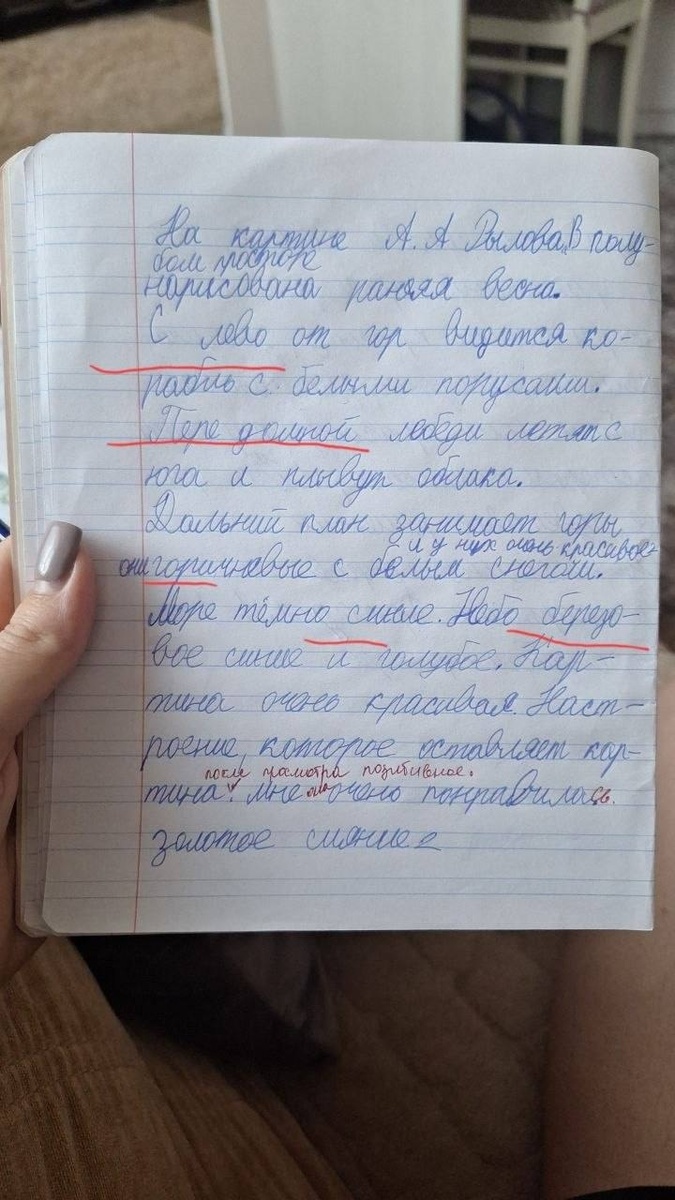 На картине А. А Рылова „В голу-
бом просторе
нарисована ранняя весна.
С лево от гор видится ко-
рабль с белыми порусами.
Пере domной лебеди летят с
юга и плывут облака.
Дальний план занимает горы
и у них очень красивое
они горичневые с белым снегом.
Море тёмно синие. Небо березо-
вое синие и голубое. Кар-
тина очень красивая. Наст-
роение, которое оставляет кар-
после прсмотра позитивное.
тина. мне она очено понравилась.
золотое сияние